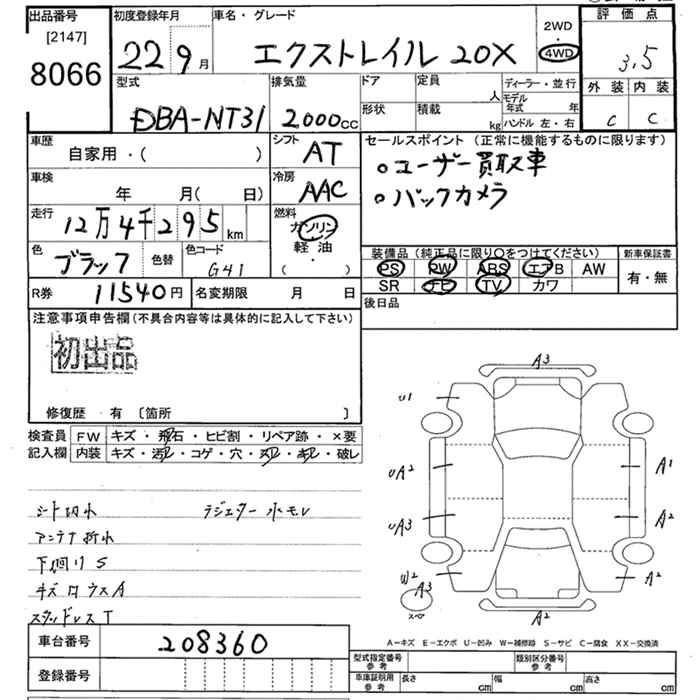 出品番号
[2147]
8066
初度登録年月
22 9月
車名・グレード
エクストレイル 20X
2WD
・
4WD
評価点
3.5
外装 内装
C C
型式
DBA-NT31
排気量
2,000cc
ドア
形状
定員
人
積載
kg
ディーラー・並行
モデル年式 年
ハンドル 左・右
車歴
自家用・( )
シフト
AT
車検
年 月( 日)
冷房
AAC
走行
12万4千295km
燃料
ガソリン
軽油
( )
色
ブラック
色替
色コード
G41
セールスポイント(正常に機能するものに限ります)
○ユーザー買取車
○バックカメラ
装備品(純正品に限り○をつけてください)
PS PW ABS エアB AW
SR ナビ TV カワ
新車保証書
有・無
R券
11540円
名変期限 月 日
後日品
注意事項申告欄(不具合内容等は具体的に記入して下さい)
初出品
修復歴・有〔箇所 〕
検査員
記入欄
FW キズ・飛石・ヒビ割・リペア跡・×要
内装 キズ・汚レ・コゲ・穴・スレ・キレ・破レ
シート切れ ラジエター水モレ
アンテナ折れ
下廻りS
スタッドレスT
A3
U1
UA2
UA3
W2
A3
A1
A2
A2
A2
スペア
A－キズ E－エクボ U－凹み W－補修跡 S－サビ C－腐食 XX－交換済
車台番号
208360
登録番号
型式指定番号
参考
類別区分番号
参考
車庫証明用
参考
長さ cm
幅 cm
高さ cm